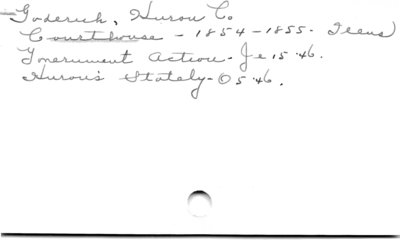 Goderich, Huron Co
Courthouse - 1854-1855.
Government Action - Je 15 '46.
Huron's Stately - O 5 '46.